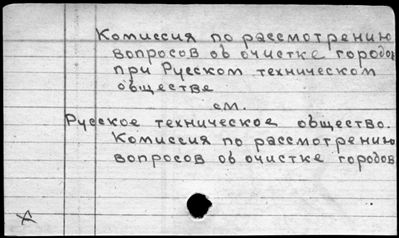 Комиссия по рассмотрению
вопросов об очистке городов
при Русском техническом
обществе
см.
Русское техническое общество.
Комиссия по рассмотрению
вопросов об очистке городов